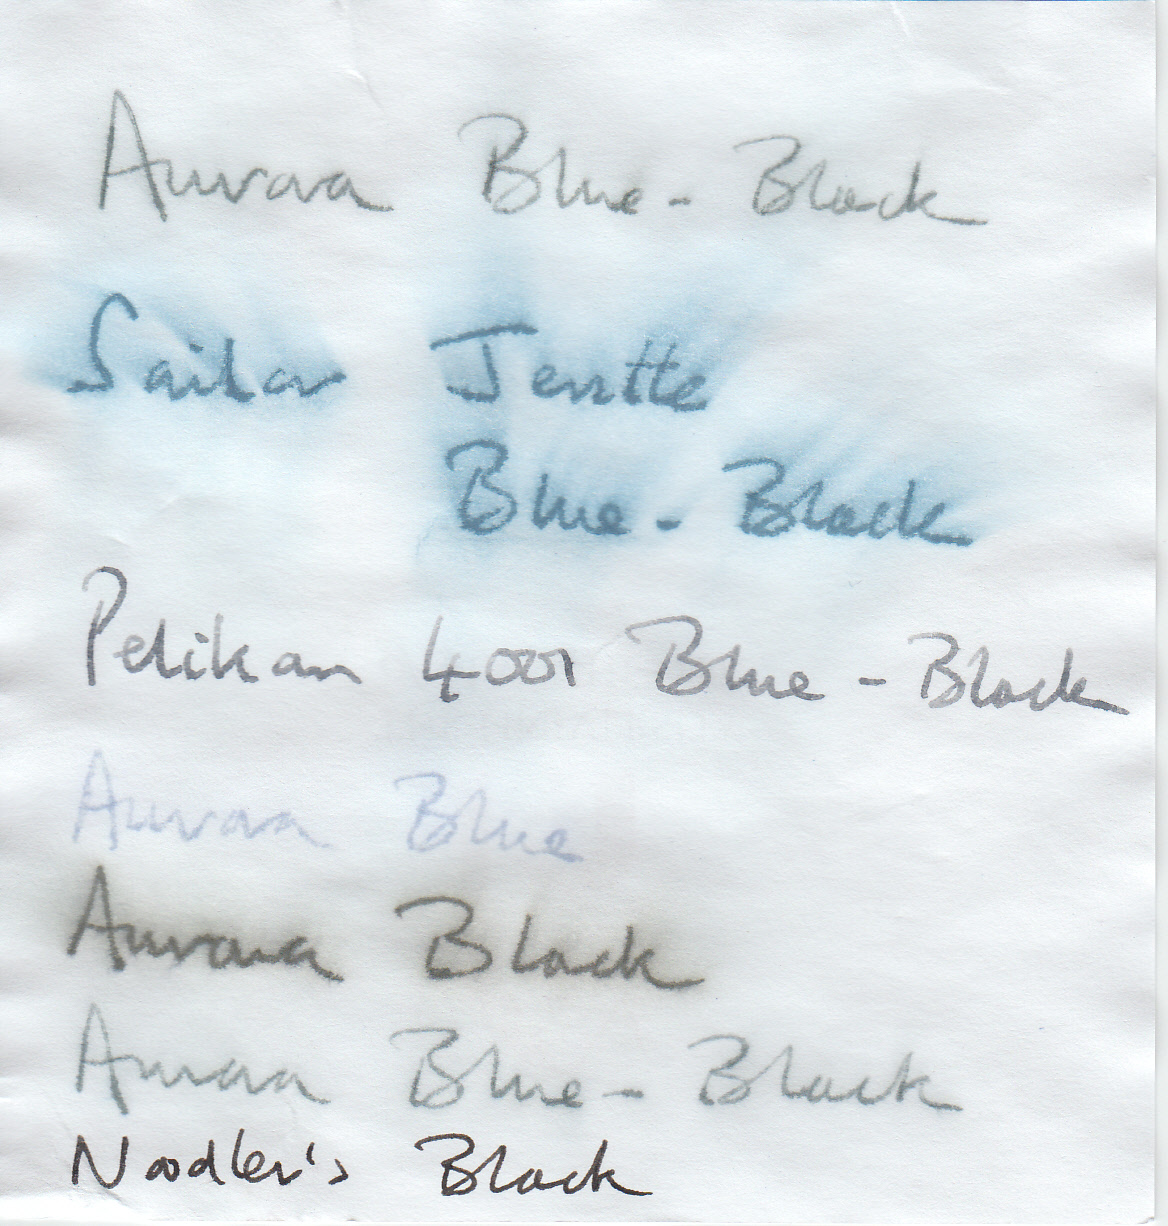 Aurora Blue-Black
Sailor Jentle
Blue-Black
Pelikan 4001 Blue-Black
Aurora Blue
Aurora Black
Aurora Blue-Black
Noodler's Black